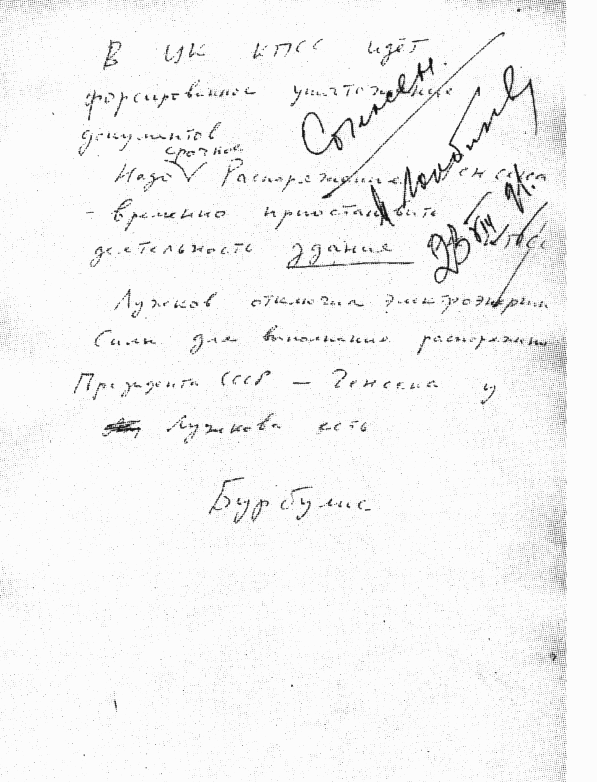 В ЦК КПСС идёт
форсированное уничтожение
документов
срочное
Надо √ Распоряжение Генсека
- временно приостановить
деятельность здания КПСС
Лужков отключил электроэнергии
Силы для выполнения распоряжения
Президента СССР — Генсека у
Лужкова есть
Бурбулис
Согласен.
23 VIII 91.